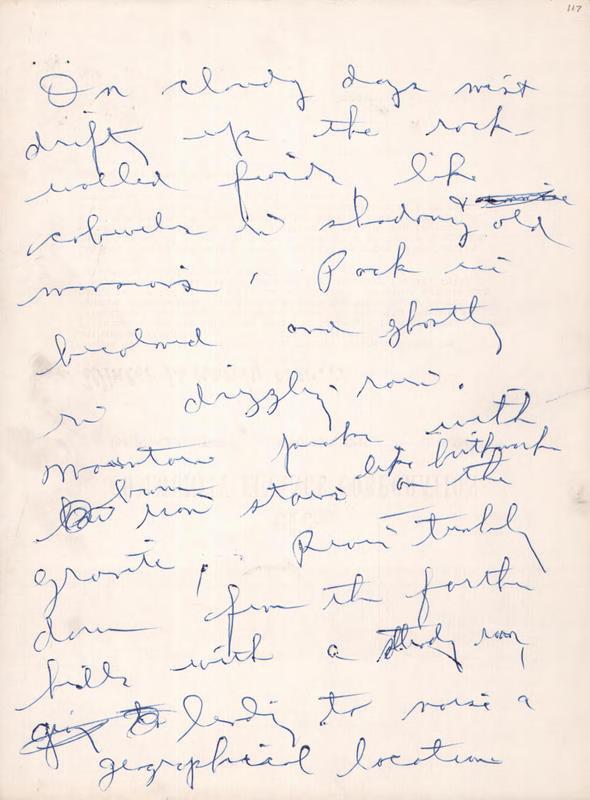 117
On cloudy days mist
drifts up the rock
walled fjords like
cobwebs in shadowy & old
mansions. Pack ice
becalmed and ghostly
in drizzly rain.
Mountain peaks with
brown iron stains like
on the
granite. River tumbly
down from the farther
hills with a steady roar,
lending to noise a
geographical location